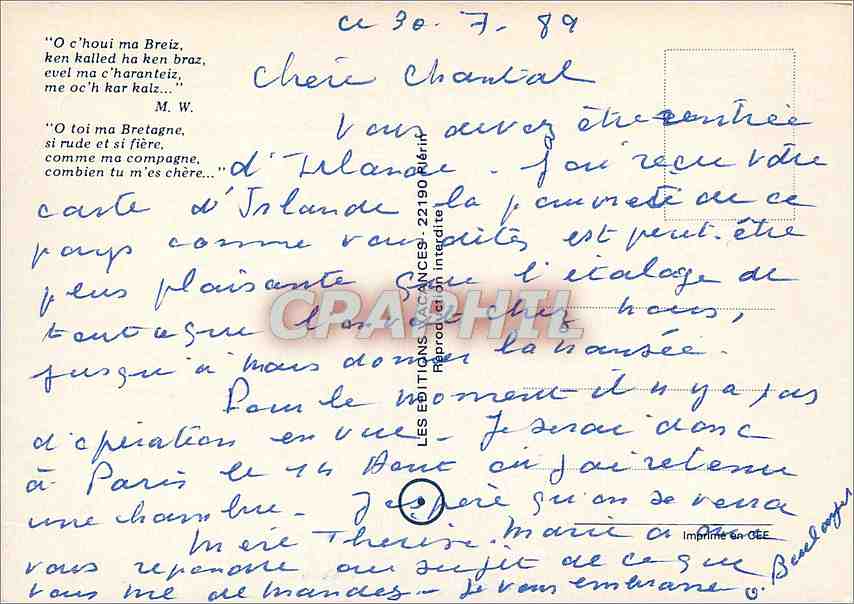 ce 30. 7. 89
"O c'houi ma Breiz,
ken kalled ha ken braz,
evel ma c'haranteiz,
me oc'h kar kalz..."
M. W.
"O toi ma Bretagne,
si rude et si fière,
comme ma compagne,
combien tu m'es chère..."
Chère Chantal
Vous devez être rentrée
d'Irlande. J'ai reçu votre
carte d'Islande la pauvreté de ce
pays comme vous dites est peut-être
plus plaisante que l'étalage de
tout ce que l'on voit chez nous,
jusqu'à nous donner la nausée.
Pour le moment il n'y a pas
d'opération en vue. Je serai donc
à Paris le 14 Août où j'ai retenu
une chambre. J'espère qu'on se verra
Mère Thérèse. Marie a
vous répondre au sujet de ce que
vous me demandez. Je vous embrasse
LES EDITIONS VACANCES - 22190 Plérin
Reproduction interdite
Imprimé en CEE
CPAPHIL